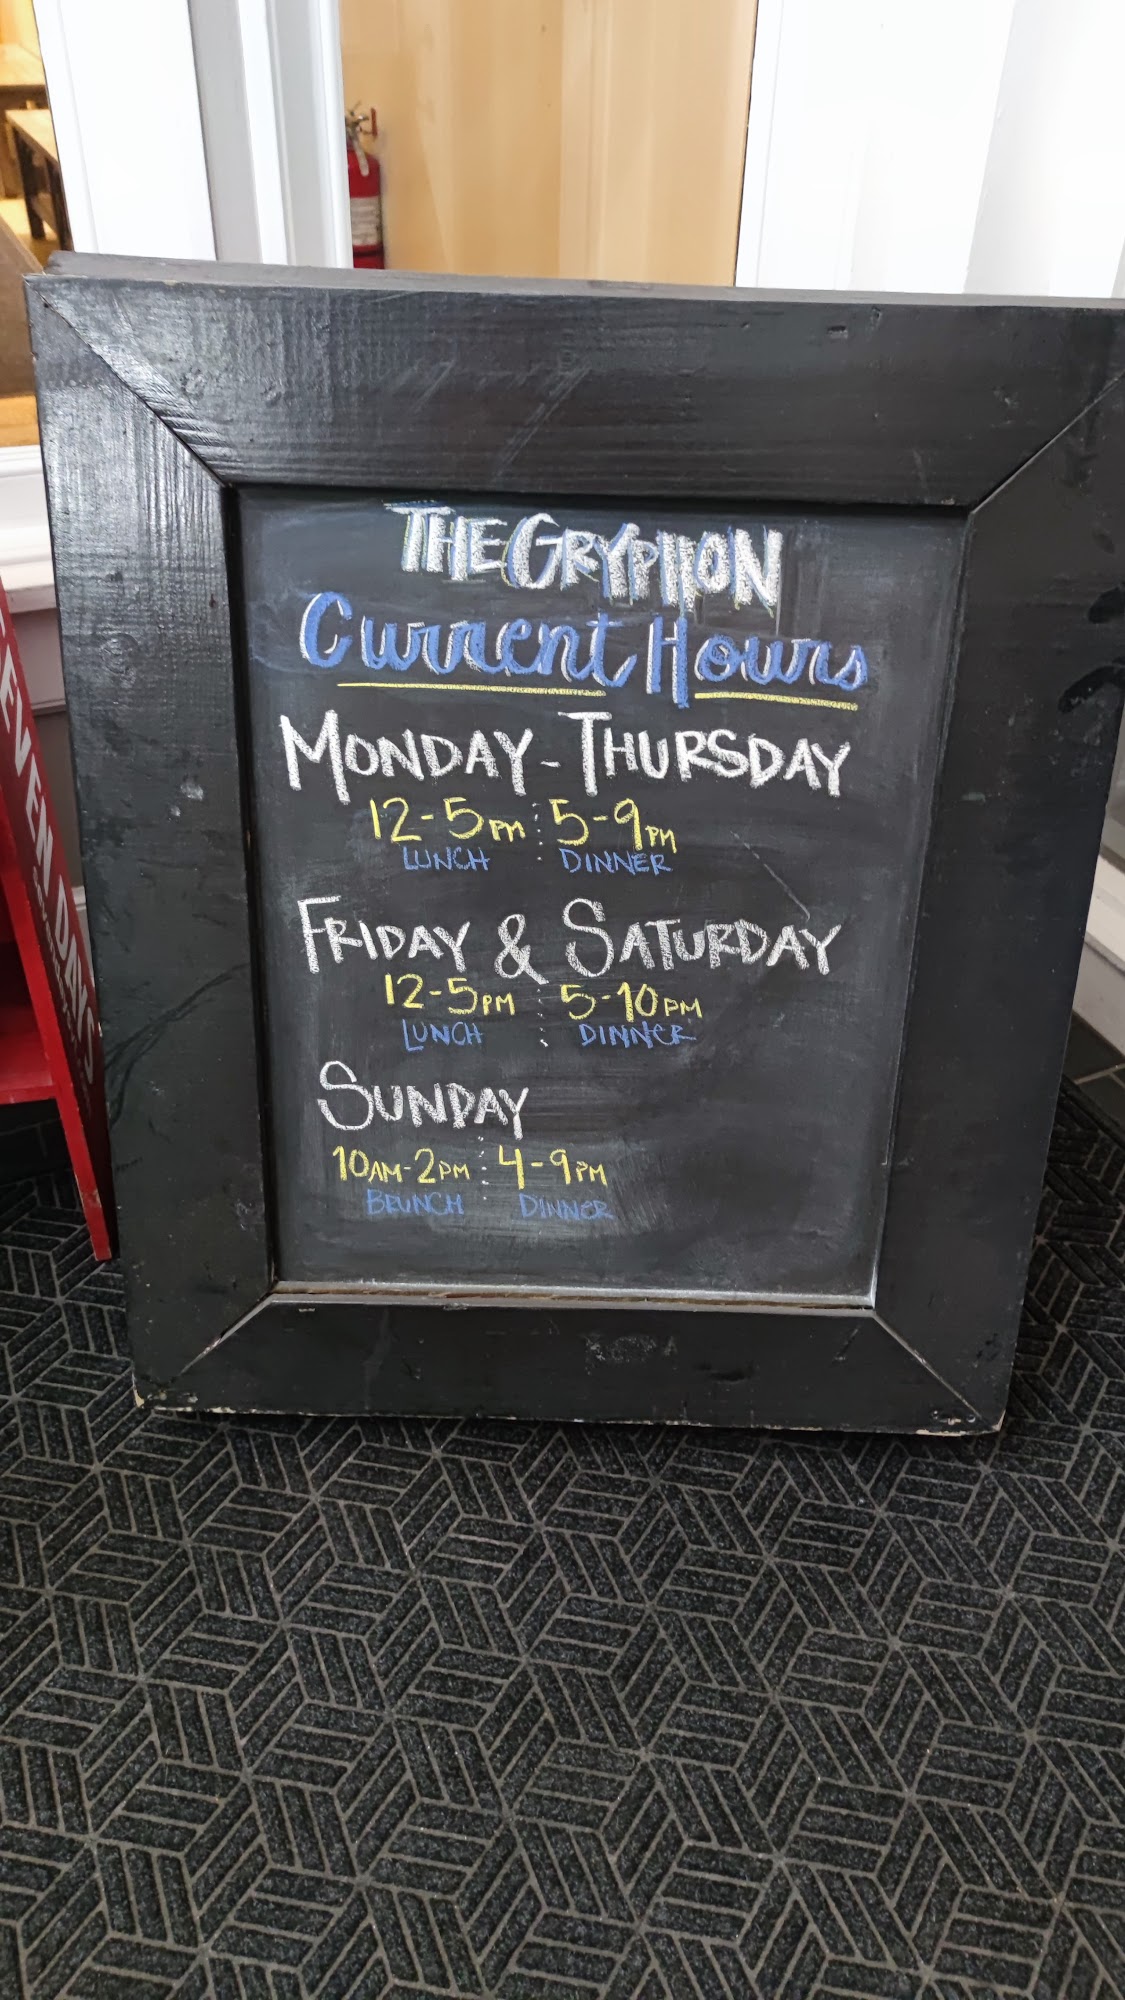 THE GRYPHON
Current Hours
MONDAY - THURSDAY
12-5PM : 5-9PM
LUNCH : DINNER
FRIDAY & SATURDAY
12-5PM : 5-10PM
LUNCH : DINNER
SUNDAY
10AM-2PM : 4-9PM
BRUNCH : DINNER
SEVEN DAYS